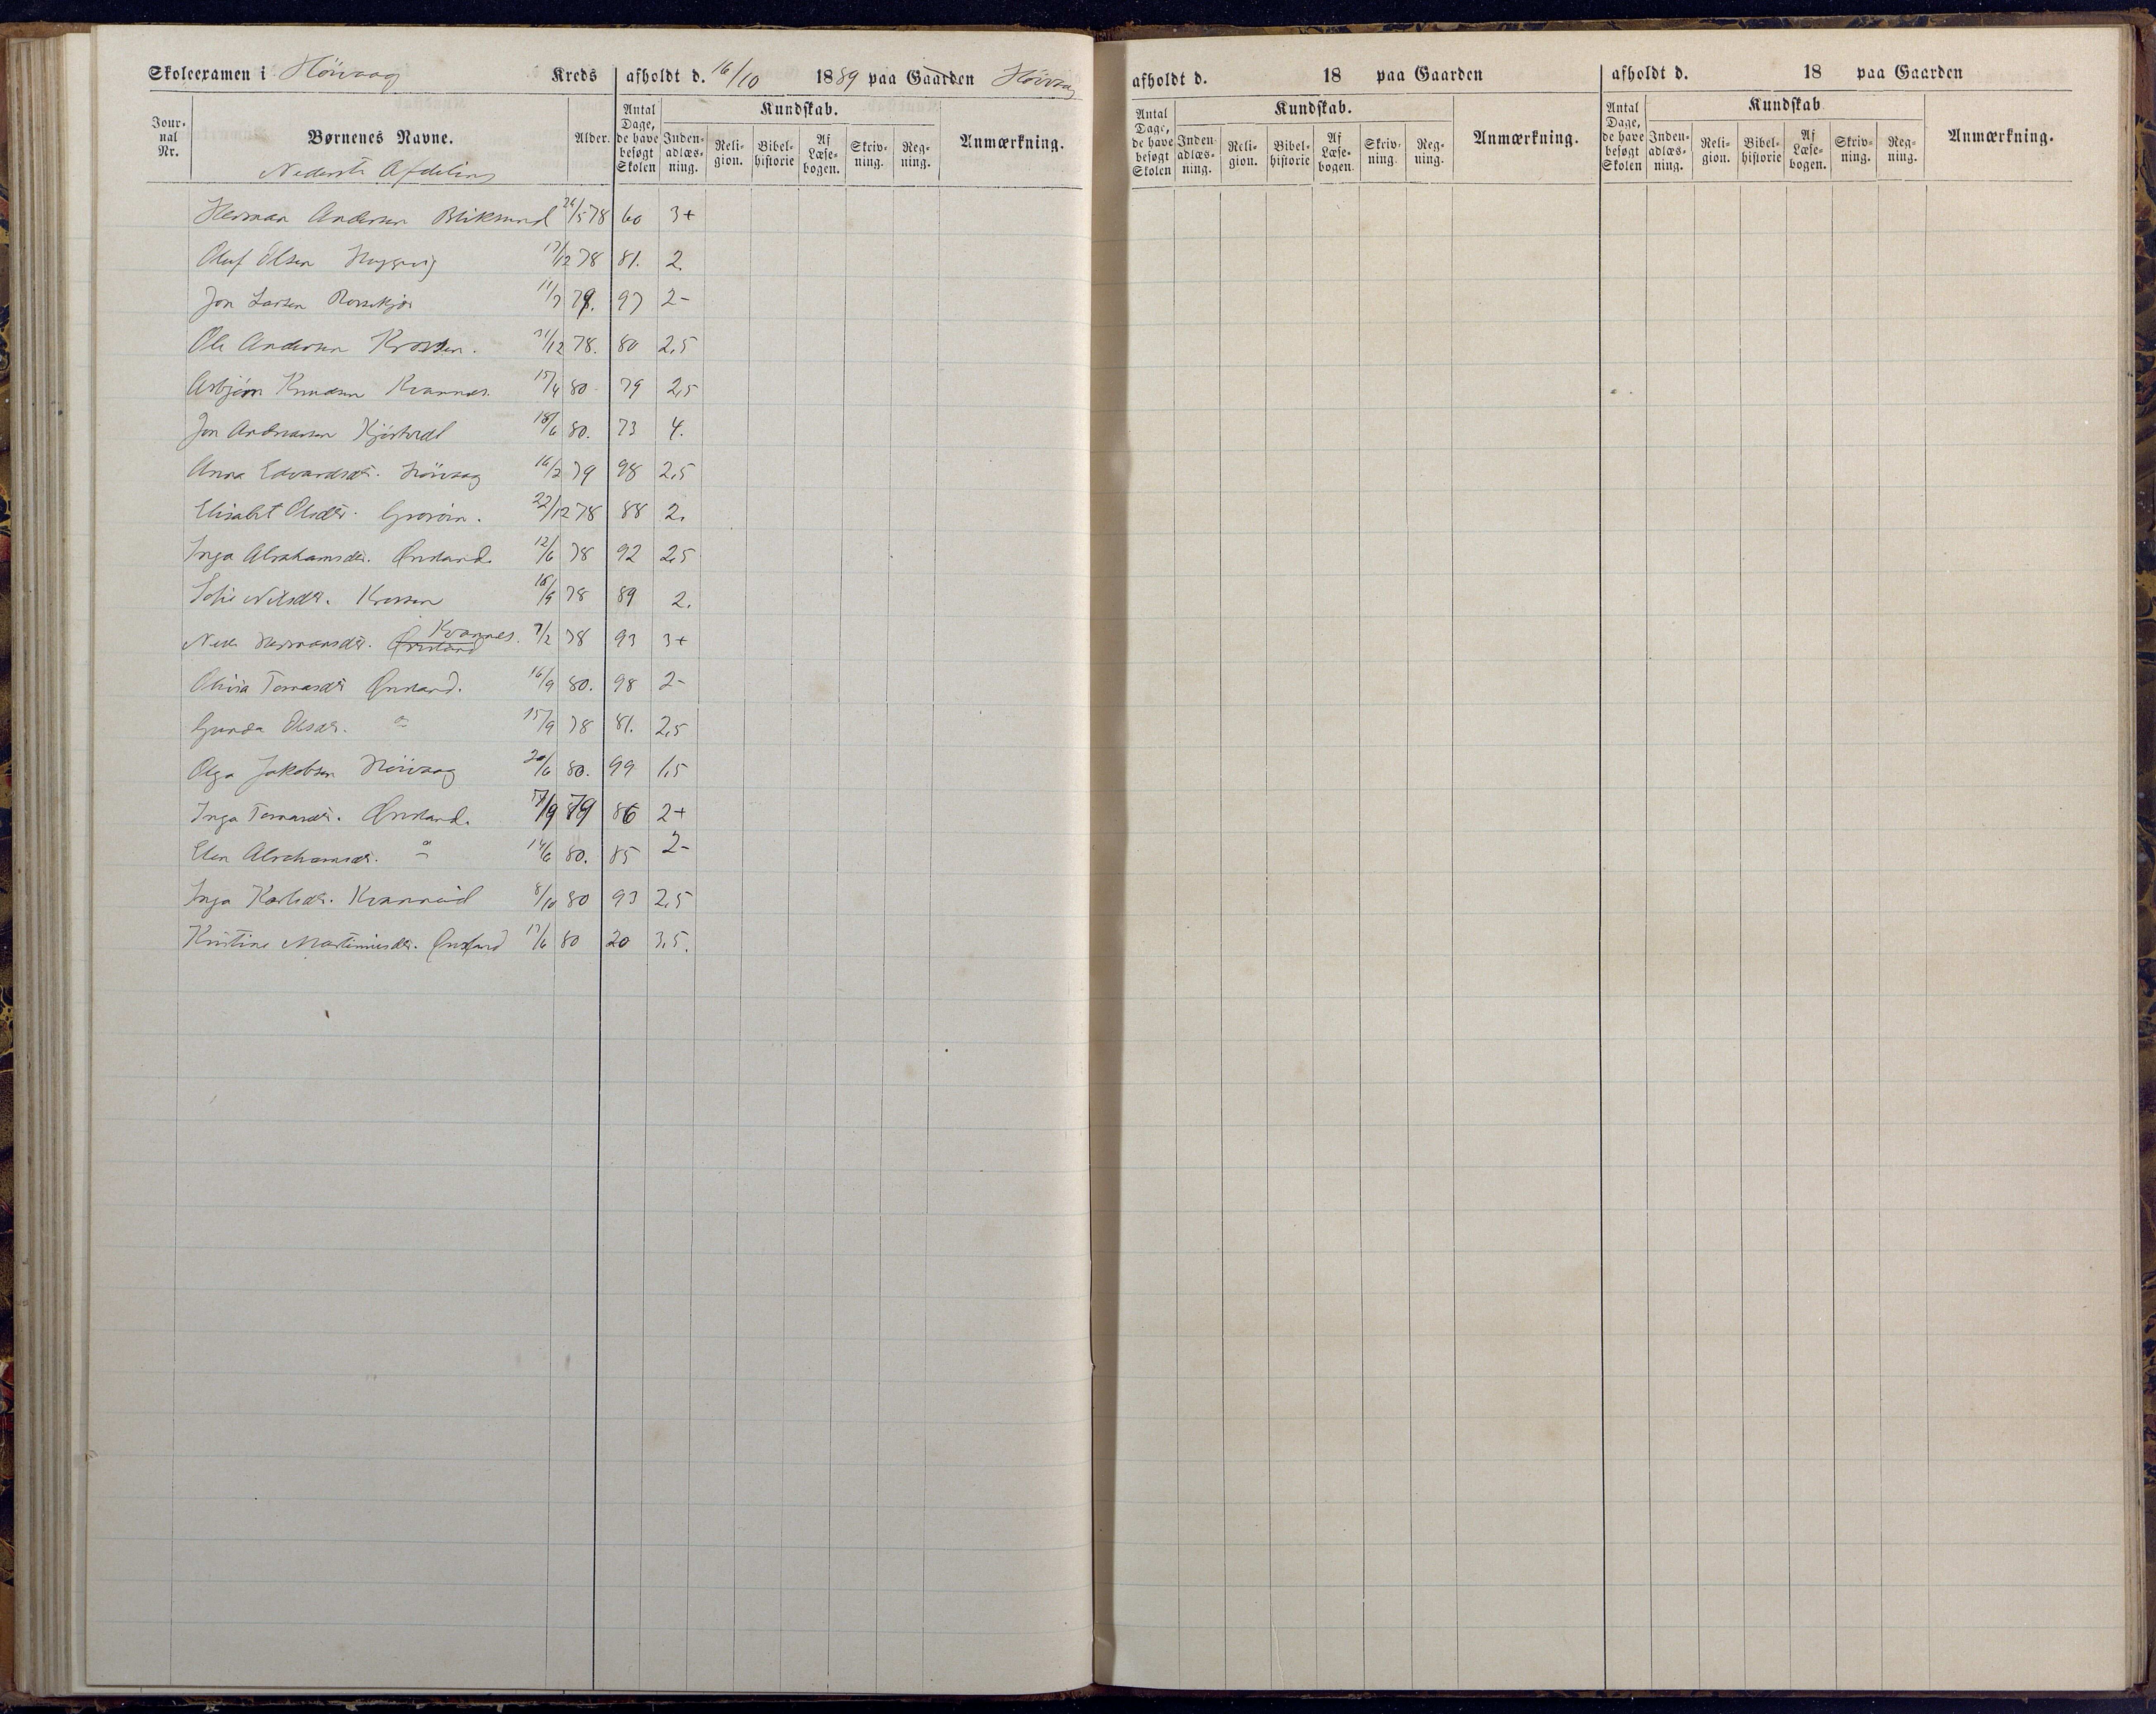 Skoleexamen i Höivaag Kreds afholdt d. 16/10 1889 paa Gaarden Höivaag
Jour-nal Nr. Børnenes Navne. Alder. Antal Dage, de have besøgt Skolen Kundskab. Inden-adlæs-ning. Reli-gion. Bibel-historie Af Læse-bogen. Skriv-ning. Reg-ning. Anmærkning.
Nederste Afdeling
Herman Andersen Bliksund 26/5 78 60 3+
Oluf Olsen 17/12 78 81. 2.
Jon Larsen 11/7 79. 97 2-
Ole Andersen Krossen. 21/12 78. 80 2,5
Asbjørn Knudsen Kvannes. 15/4 80 79 2,5
Jon Andreassen 18/6 80. 73 4.
Anna Edvardsdtr. Höivaag 16/2 79 98 2,5
Elisabet Olsdtr. 22/12 78 88 2.
Inga Abrahamsdtr. Ørsland. 12/6 78 92 2,5
Sofie Nilsdtr. Krossen 18/9 78 89 2.
Hermansdtr. Ørsland Kvannes. 7/2 78 93 3+
Olivia Tomasdtr Ørsland. 16/9 80. 98 2-
Gunda Olsdtr. " 15/9 78 81. 2,5
Olga Jakobsen Höivaag 20/6 80. 99 1,5
Inga Tomasdtr. Ørsland. 79 86 2+
Elen Abrahamsdtr. " 14/6 80. 85 2-
Inga Karlsdtr. 8/10 80 93 2,5
Kristine Martiniusdtr. Ørsland 17/6 80 20 3,5.
afholdt d. 18 paa Gaarden
Antal Dage, de have besøgt Skolen Kundskab. Inden-adlæs-ning. Reli-gion. Bibel-historie Af Læse-bogen. Skriv-ning. Reg-ning. Anmærkning.
afholdt d. 18 paa Gaarden
Antal Dage, de have besøgt Skolen Kundskab Inden-adlæs-ning. Reli-gion. Bibel-historie Af Læse-bogen. Skriv-ning. Reg-ning. Anmærkning.